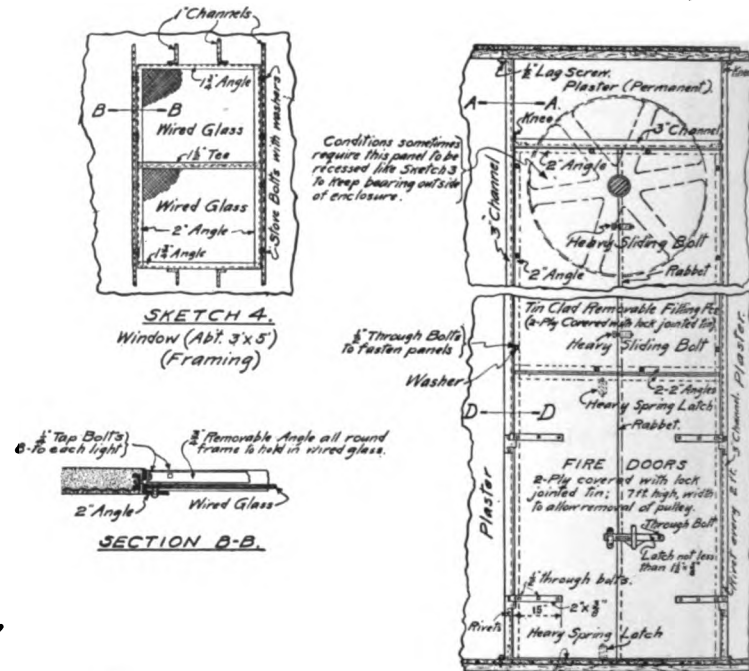 1" Channels
1¾" Angle
B
B
Wired Glass
1½" Tee
Wired Glass
2" Angle
1¾" Angle
Stove Bolts with washers
SKETCH 4.
Window (Abt. 3'x5')
(Framing)
Tap Bolts
8-to each light
¾" Removable Angle all round
frame to hold in wired glass.
2" Angle
Wired Glass
SECTION B-B.
½" Lag Screw.
Plaster (Permanent).
A
A.
Knee
Knee
3" Channel
Conditions sometimes
require this panel to be
recessed like Sketch 3
to keep bearing outside
of enclosure.
2" Angle
3" Channel
Heavy Sliding Bolt
2" Angle
Rabbet
Tin Clad Removable Filling Pce
(2-Ply Covered with lock jointed tin).
½" Through Bolts
to fasten panels
Heavy Sliding Bolt
Washer
2-2" Angles
Heavy Spring Latch
D
D
Rabbet.
FIRE DOORS
2-Ply covered with lock
jointed tin; 7ft. high, width
to allow removal of pulley.
Through Bolt
Latch not less
than
Plaster
½" through bolts.
15"
2"x⅜"
Rivets
Heavy Spring Latch
Rivet every 2 ft. 3" Channel. Plaster.